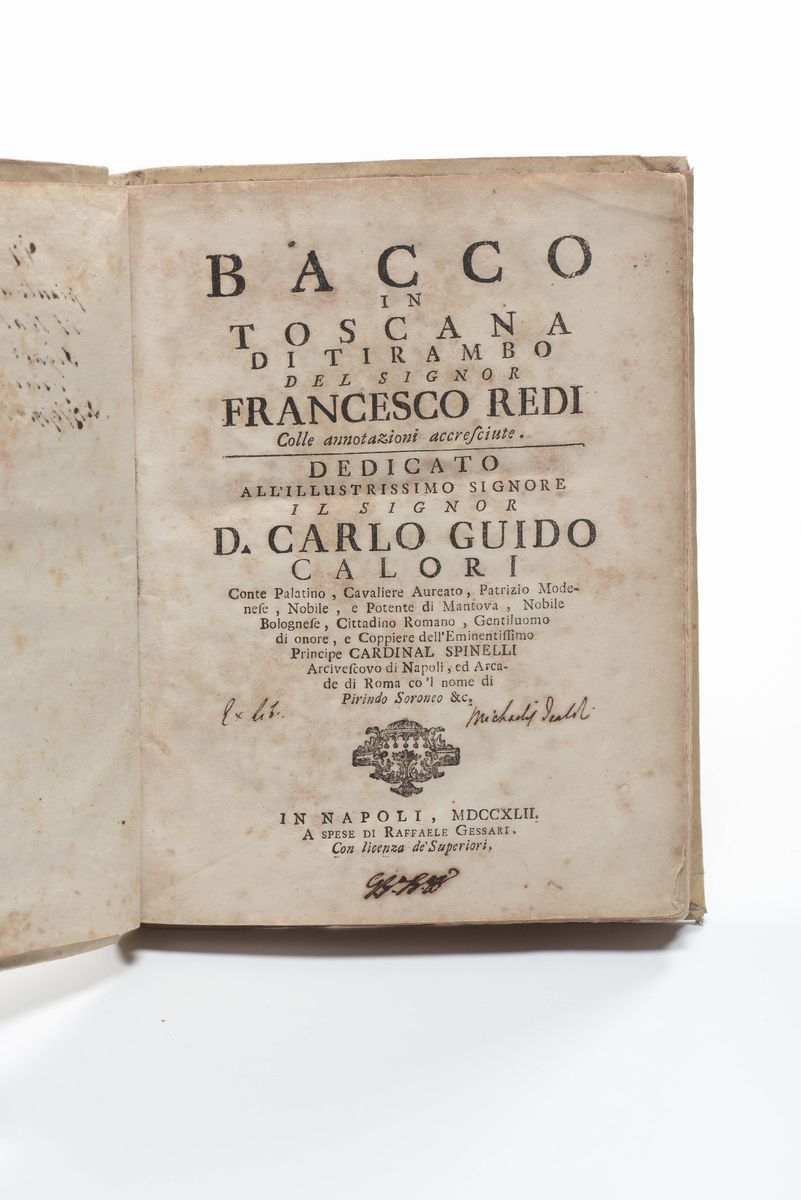 BACCO
IN
TOSCANA
DITIRAMBO
DEL SIGNOR
FRANCESCO REDI
Colle annotazioni accreſciute.
DEDICATO
ALL'ILLUSTRISSIMO SIGNORE
IL SIGNOR
D. CARLO GUIDO
CALORI
Conte Palatino, Cavaliere Aureato, Patrizio Mode-
neſe, Nobile, e Potente di Mantova, Nobile
Bologneſe, Cittadino Romano, Gentiluomo
di onore, e Coppiere dell'Eminentiſſimo
Principe CARDINAL SPINELLI
Arciveſcovo di Napoli, ed Arca-
de di Roma co'l nome di
Pirindo Soroneo &c.
Ex lib. Michaelis
IN NAPOLI, MDCCXLII.
A SPESE DI RAFFAELE GESSARI.
Con licenza de' Superiori.